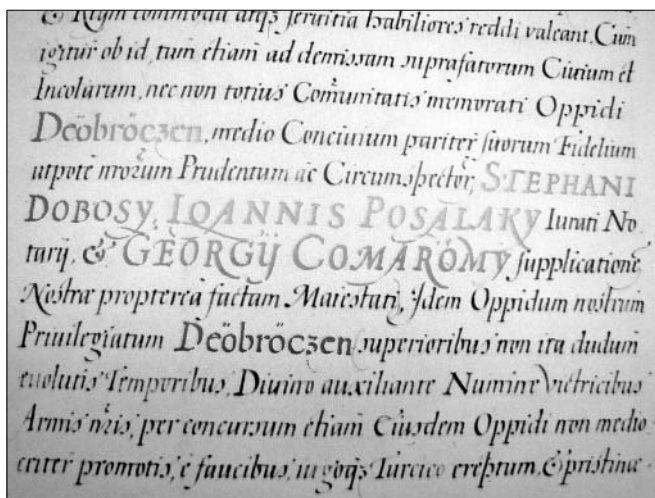 & Regni commoda atq₃ seruitia habiliores reddi valeant. Cum
igitur ob id, tum etiam ad demissam suprafatorum Ciuium et
Incolarum, nec non totius Com̃unitatis memorati Oppidi
Deöbröczen, medio Conciuium pariter suorum Fidelium
utpote nrorum Prudentum ac Circumspector, STEPHANI
DOBOSY, IOANNIS POSALAKY Iurati No
tarij, & GEORGIJ COMAROMY supplicatione
Nostræ propterea factam Maiestati, Idem Oppidum nostrum
Priuilegiatum Deöbröczen superioribus non ita dudum
euolutis Temporibus, Diuino auxiliante Numine Victricibus
Armis nris, per concursum etiam Eiusdem Oppidi non medio
criter promotis, e faucibus, iugoq₃ Turcico ereptum, & pristinæ